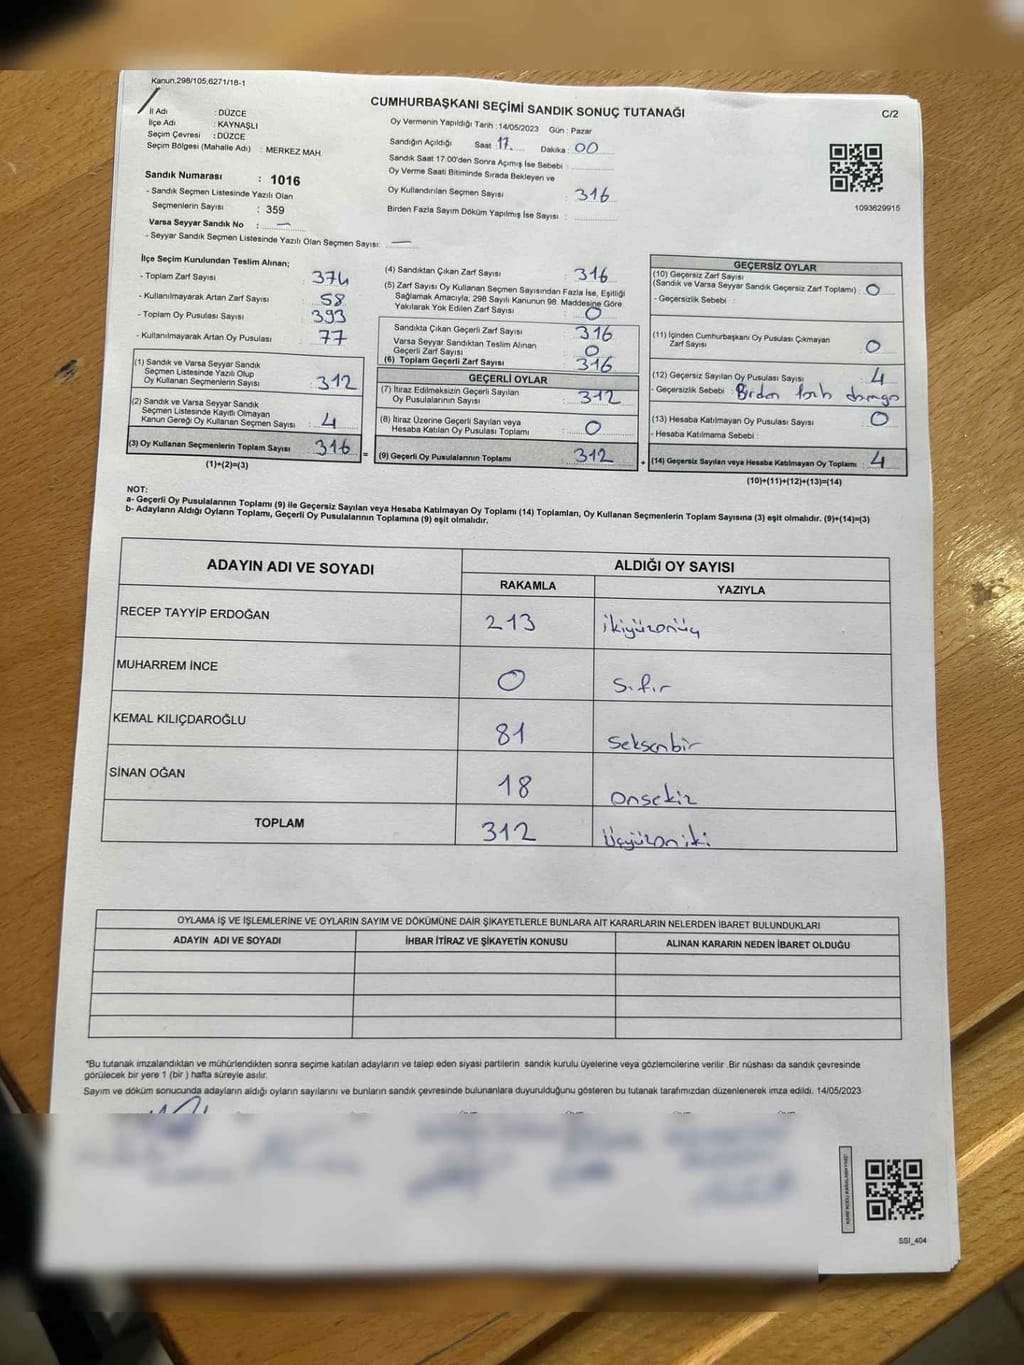 Kanun.298/105,6271/18-1
CUMHURBAŞKANI SEÇİMİ SANDIK SONUÇ TUTANAĞI
C/2
İl Adı : DÜZCE
İlçe Adı : KAYNAŞLI
Seçim Çevresi : DÜZCE
Seçim Bölgesi (Mahalle Adı) : MERKEZ MAH.
Sandık Numarası : 1016
- Sandık Seçmen Listesinde Yazılı Olan
Seçmenlerin Sayısı : 359
Varsa Seyyar Sandık No : —
- Seyyar Sandık Seçmen Listesinde Yazılı Olan Seçmen Sayısı: —
Oy Vermenin Yapıldığı Tarih : 14/05/2023 Gün : Pazar
Sandığın Açıldığı Saat : 17. Dakika : 00
Sandık Saat 17:00'den Sonra Açımış İse Sebebi :
Oy Verme Saati Bitiminde Sırada Bekleyen ve
Oy Kullandırılan Seçmen Sayısı : 316
Birden Fazla Sayım Döküm Yapılmış İse Sayısı :
1093629915
İlçe Seçim Kurulundan Teslim Alınan;
- Toplam Zarf Sayısı : 374
- Kullanılmayarak Artan Zarf Sayısı : 58
- Toplam Oy Pusulası Sayısı : 393
- Kullanılmayarak Artan Oy Pusulası : 77
(1) Sandık ve Varsa Seyyar Sandık
Seçmen Listesinde Yazılı Olup
Oy Kullanan Seçmenlerin Sayısı : 312
(2) Sandık ve Varsa Seyyar Sandık
Seçmen Listesinde Kayıtlı Olmayan
Kanun Gereği Oy Kullanan Seçmen Sayısı : 4
(3) Oy Kullanan Seçmenlerin Toplam Sayısı : 316
(1)+(2)=(3)
=
(4) Sandıktan Çıkan Zarf Sayısı : 316
(5) Zarf Sayısı Oy Kullanan Seçmen Sayısından Fazla İse, Eşitliği
Sağlamak Amacıyla; 298 Sayılı Kanunun 98. Maddesine Göre
Yakılarak Yok Edilen Zarf Sayısı : 0
Sandıkta Çıkan Geçerli Zarf Sayısı : 316
Varsa Seyyar Sandıktan Teslim Alınan
Geçerli Zarf Sayısı : 0
(6) Toplam Geçerli Zarf Sayısı : 316
GEÇERLİ OYLAR
(7) İtiraz Edilmeksizin Geçerli Sayılan
Oy Pusulalarının Sayısı : 312
(8) İtiraz Üzerine Geçerli Sayılan veya
Hesaba Katılan Oy Pusulası Toplamı : 0
(9) Geçerli Oy Pusulalarının Toplamı : 312
+
GEÇERSİZ OYLAR
(10) Geçersiz Zarf Sayısı
(Sandık ve Varsa Seyyar Sandık Geçersiz Zarf Toplamı) : 0
- Geçersizlik Sebebi :
(11) İçinden Cumhurbaşkanı Oy Pusulası Çıkmayan
Zarf Sayısı : 0
(12) Geçersiz Sayılan Oy Pusulası Sayısı : 4
- Geçersizlik Sebebi : Birden
(13) Hesaba Katılmayan Oy Pusulası Sayısı : 0
- Hesaba Katılmama Sebebi :
(14) Geçersiz Sayılan veya Hesaba Katılmayan Oy Toplamı : 4
(10)+(11)+(12)+(13)=(14)
NOT:
a- Geçerli Oy Pusulalarının Toplamı (9) ile Geçersiz Sayılan veya Hesaba Katılmayan Oy Toplamı (14) Toplamları, Oy Kullanan Seçmenlerin Toplam Sayısına (3) eşit olmalıdır. (9)+(14)=(3)
b- Adayların Aldığı Oyların Toplamı, Geçerli Oy Pusulalarının Toplamına (9) eşit olmalıdır.
ADAYIN ADI VE SOYADI ALDIĞI OY SAYISI
RAKAMLA YAZIYLA
RECEP TAYYİP ERDOĞAN 213 ikiyüzonüç
MUHARREM İNCE 0 Sıfır
KEMAL KILIÇDAROĞLU 81 Seksenbir
SİNAN OĞAN 18 Onsekiz
TOPLAM 312 Üçyüzoniki
OYLAMA İŞ VE İŞLEMLERİNE VE OYLARIN SAYIM VE DÖKÜMÜNE DAİR ŞİKAYETLERLE BUNLARA AİT KARARLARIN NELERDEN İBARET BULUNDUKLARI
ADAYIN ADI VE SOYADI İHBAR İTİRAZ VE ŞİKAYETİN KONUSU ALINAN KARARIN NEDEN İBARET OLDUĞU
*Bu tutanak imzalandıktan ve mühürlendikten sonra seçime katılan adayların ve talep eden siyasi partilerin sandık kurulu üyelerine veya gözlemcilerine verilir .Bir nüshası da sandık çevresinde
görülecek bir yere 1 (bir ) hafta süreyle asılır.
Sayım ve döküm sonucunda adayların aldığı oyların sayılarını ve bunların sandık çevresinde bulunanlara duyurulduğunu gösteren bu tutanak tarafımızdan düzenlenerek imza edildi. 14/05/2023
SSI_404